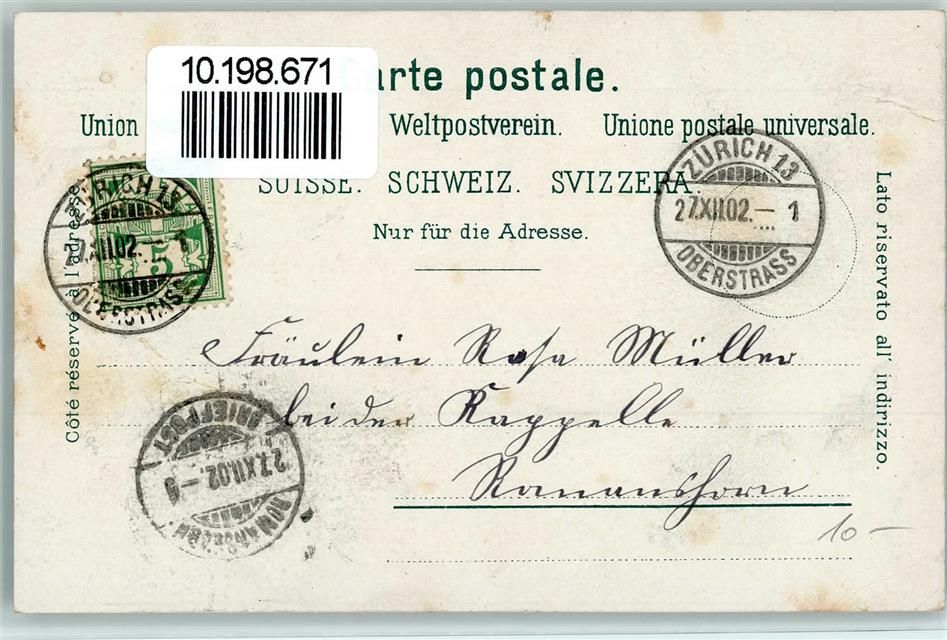 10.198.671
arte postale.
Union Weltpostverein. Unione postale universale.
SUISSE. SCHWEIZ. SVIZZERA.
Nur für die Adresse.
Côté réservé à l'adresse.
Lato riservato all' indirizzo.
ZÜRICH 13
27.XII.02.– 1
OBERSTRASS
ZÜRICH 13
27.XII.02. 1
OBERSTRASS
5
Fräulein Rosa Müller
bei der Kappelle
Romanshorn
BRIEFPOST
27.XII.02.–6
ROMANSHORN
10 –